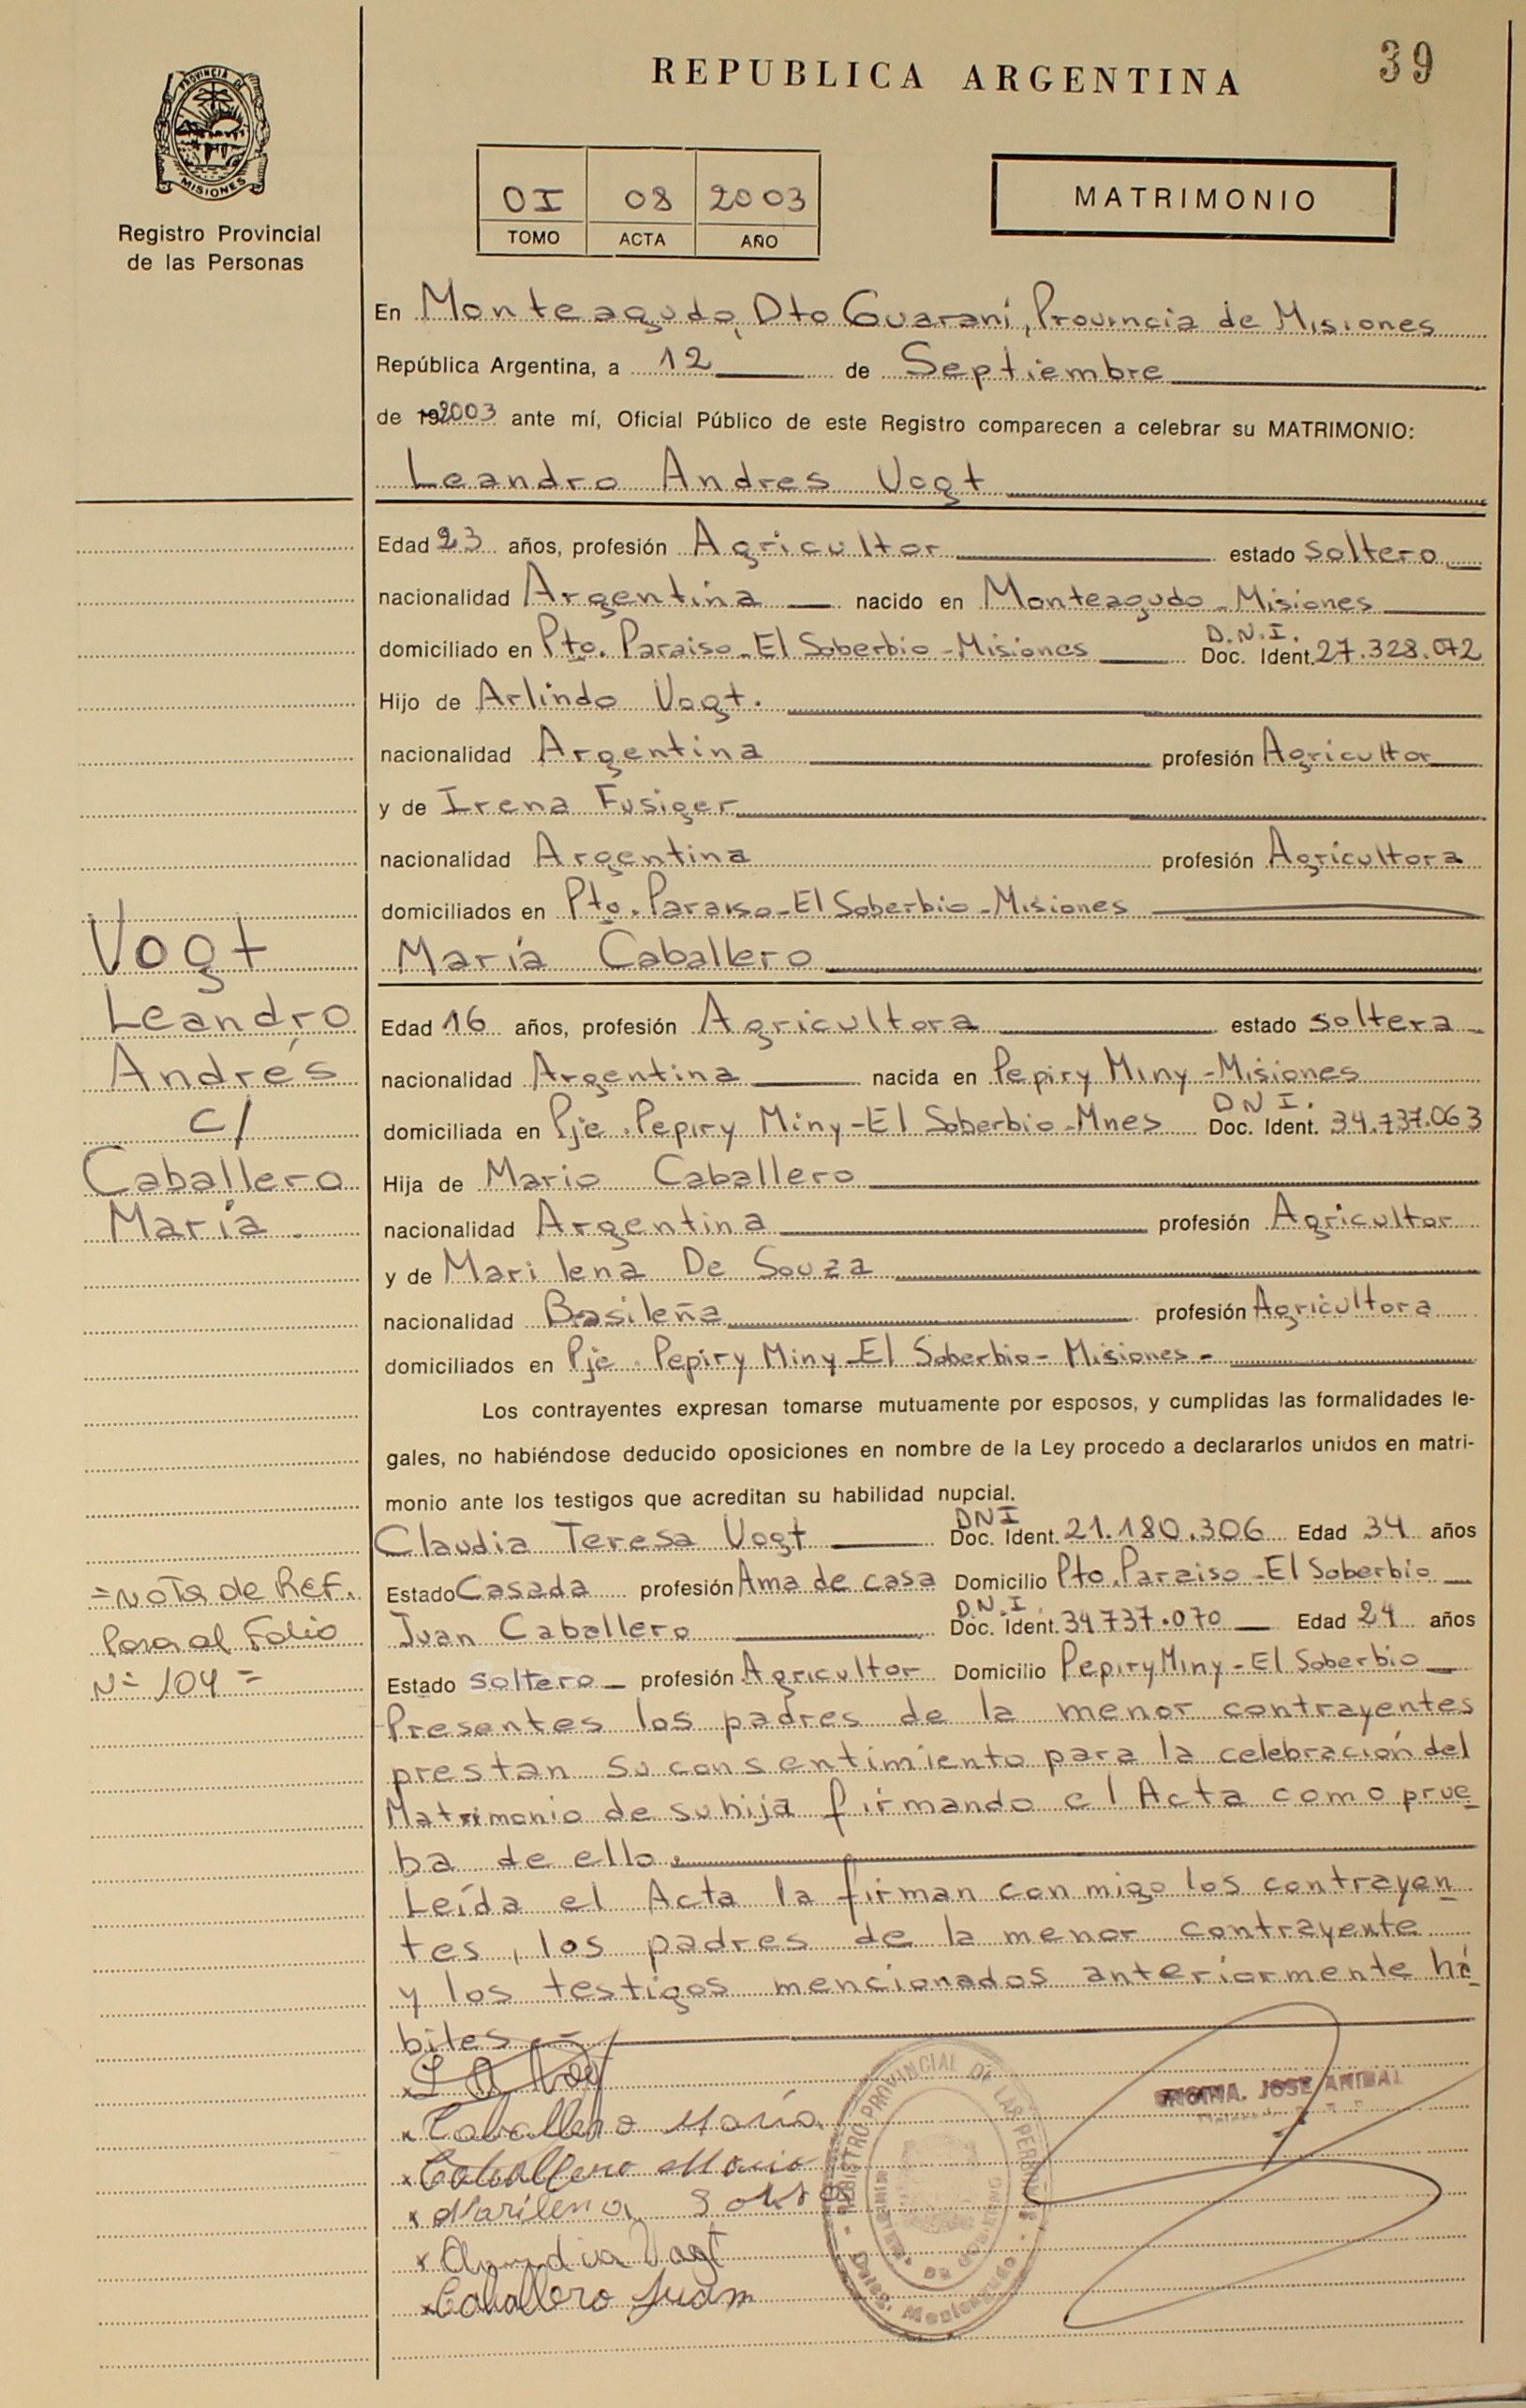 39
REPUBLICA ARGENTINA
PROVINCIA DE
MISIONES
Registro Provincial
de las Personas
OI 08 2003
TOMO ACTA AÑO
MATRIMONIO
En Monteagudo, Dto Guaraní, Provincia de Misiones
República Argentina, a 12 de Septiembre
de 192003 ante mí, Oficial Público de este Registro comparecen a celebrar su MATRIMONIO:
Leandro Andres Vogt
Edad 23 años, profesión Agricultor estado soltero
nacionalidad Argentina nacido en Monteagudo - Misiones
domiciliado en Pto. Paraiso - El Soberbio - Misiones D.N.I. Doc. Ident. 27.328.072
Hijo de Arlindo Vogt.
nacionalidad Argentina profesión Agricultor
y de Irena Fusiger
nacionalidad Argentina profesión Agricultora
domiciliados en Pto. Paraiso - El Soberbio - Misiones
María Caballero
Edad 16 años, profesión Agricultora estado soltera
nacionalidad Argentina nacida en Pepiry Miny - Misiones
domiciliada en Pje. Pepiry Miny - El Soberbio - Mnes DNI. Doc. Ident. 34.737.063
Hija de Mario Caballero
nacionalidad Argentina profesión Agricultor
y de Mari lena De Souza
nacionalidad Brasileña profesión Agricultora
domiciliados en Pje. Pepiry Miny - El Soberbio - Misiones -
Los contrayentes expresan tomarse mutuamente por esposos, y cumplidas las formalidades le-
gales, no habiéndose deducido oposiciones en nombre de la Ley procedo a declararlos unidos en matri-
monio ante los testigos que acreditan su habilidad nupcial.
Claudia Teresa Vogt DNI Doc. Ident. 21.180.306 Edad 34 años
Estado Casada profesión Ama de casa Domicilio Pto. Paraiso - El Soberbio
Juan Caballero D.N.I. Doc. Ident. 34737.070 Edad 24 años
Estado soltero profesión Agricultor Domicilio Pepiry Miny - El Soberbio
Presentes los padres de la menor contrayentes
prestan su consentimiento para la celebración del
Matrimonio de su hija firmando el Acta como prue
ba de ello.
Leída el Acta la firman con migo los contrayen
tes, los padres de la menor contrayente
y los testigos mencionados anteriormente há
biles.-
Vogt
Leandro
Andrés
c/
Caballero
María.
=Nota de Ref.
Pasa al Folio
Nº 104=
x Caballero María
x Caballero Mario
x Marilena Souza
x Claudia Vogt
x Caballero Juan
JOSE ANIBAL
REGISTRO PROVINCIAL DE LAS PERSONAS
Deleg. Monteagudo